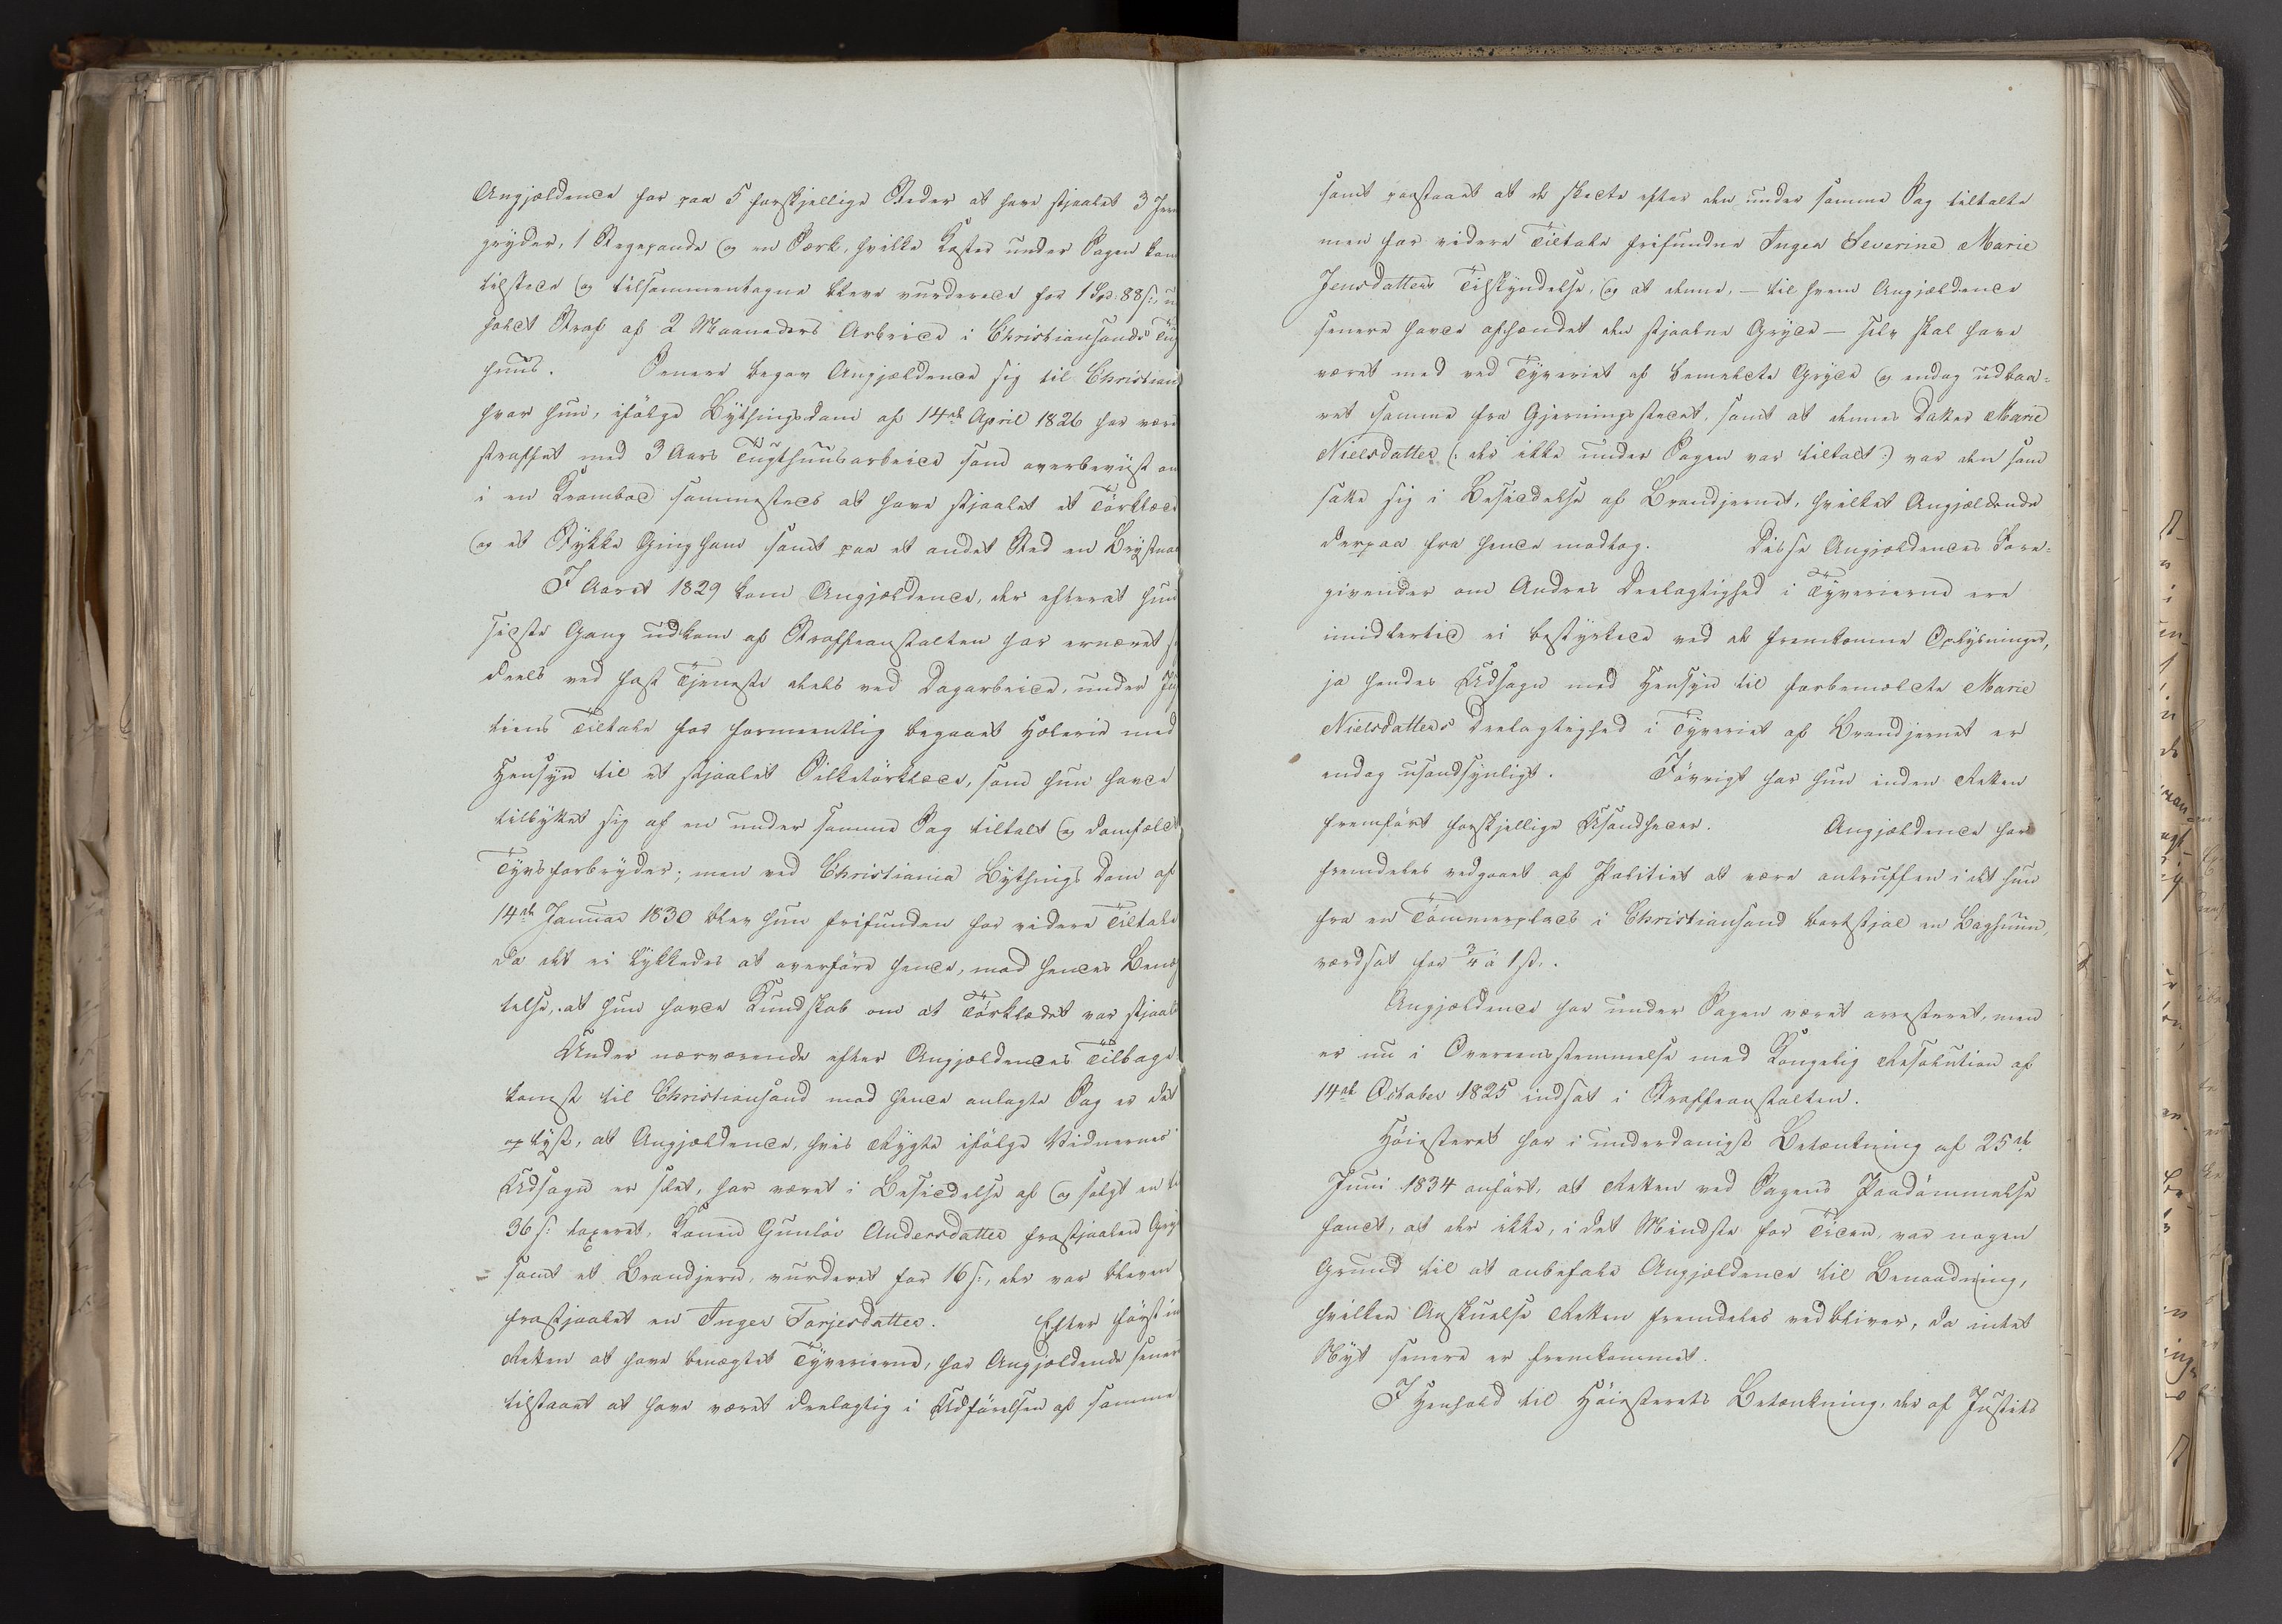 Angjældende for paa 5 forskjellige Steder at have stjaalet 3 Jern
gryder, 1 Stegepande og en Særk, hvilke Koster under Sagen kom
tilstede og tilsammentagne bleve vurderede for 1 Spd. 88 s:, ud
holdt Straf af 2 Maaneders Arbeide i Christiansands Tugt
huus. Senere begav Angjældende sig til Christiania
hvor hun, ifølge Bythingsdom af 14de April 1826 har været
straffet med 3 Aars Tugthuusarbeide som overbeviist om
i en Krambod sammesteds at have stjaalet et Tørklæde
og et Stykke Gingham samt paa et andet Sted en Brystnaal
I Aaret 1829 kom Angjældende, der efterat hun
sidste Gang udkom af Straffeanstalten har ernæret sig
deels ved fast Tjeneste deels ved Dagarbeide, under Ju
tiens Tiltale for formeentlig begaaet Hæleri med
Hensyn til et stjaalet Silketørklæde, som hun havde
tilbyttet sig af en under samme Sag tiltalt og domfældt
Tyvsforbryder; men ved Christiania Bythings Dom af
14de Januar 1830 blev hun frifunden for videre Tiltale
da det ei lykkedes at overføre hende, mod hendes Benæg
telse, at hun havde Kundskab om at Tørklædet var stjaalet
Under nærværende efter Angjældendes Tilbage
komst til Christiansand mod hende anlagte Sag er det
oplyst, at Angjældende, hvis Rygte ifølge Vidnernes
Udsagn er slet, har været i Besiddelse af og solgt en til
36 s: taxeret, Konen Gunløv Andersdatter frastjaalen Gryde
samt et Brandjern, vurderet for 16 s:, der var bleven
frastjaalet en Inger Torjesdatter. Efter først in
Retten at have benægtet Tyverierne, har Angjældende senere
tilstaaet at have været deelagtig i Udførelsen af samme
samt paastaaet at de skeete efter den under samme Sag tiltalte
men for videre Tiltale frifundne Inger Severine Marie
Jensdatters Tilskyndelse, og at denne, – til hvem Angjældende
senere havde afhændet den stjaalne Gryde – selv skal have
været med ved Tyveriet af bemeldte Gryde og endog udbaa-
ret samme fra Gjerningsstedet, samt at dennes Datter Marie
Nielsdatter (: der ikke under Sagen var tiltalt :) var den som
satte sig i Besiddelse af Brandjernet, hvilket Angjældende
derpaa fra hende modtog. Disse Angjældendes Fore-
givender om Andres Deelagtighed i Tyverierne ere
imidlertid ei bestyrkede ved de fremkomne Oplysninger,
ja hendes Udsagn med Hensyn til forbemeldte Marie
Nielsdatters Deelagtighed i Tyveriet af Brandjernet er
endog usandsynligt. Iøvrigt har hun inden Retten
fremført forskjellige Usandheder. Angjældende har
fremdeles vedgaaet af Politiet at være antruffen i det hun
fra en Tømmerplads i Christiansand bortstjal en Baghuun,
værdsat for 3/4 à 1 s:.
Angjældende har under Sagen været arresteret, men
er nu i Overeensstemmelse med Kongelig Resolution af
14de October 1825 indsat i Straffeanstalten.
Høiesteret har i underdanigst Betænkning af 25de
Juni 1834 anført, at Retten ved Sagens Paadømmelse
fandt, at der ikke, i det Mindste for Tiden, var nogen
Grund til at anbefale Angjældende til Benaadning,
hvilken Anskuelse Retten fremdeles vedbliver, da intet
Nyt senere er fremkommet.
I Henhold til Høiesterets Betænkning, der af Justits